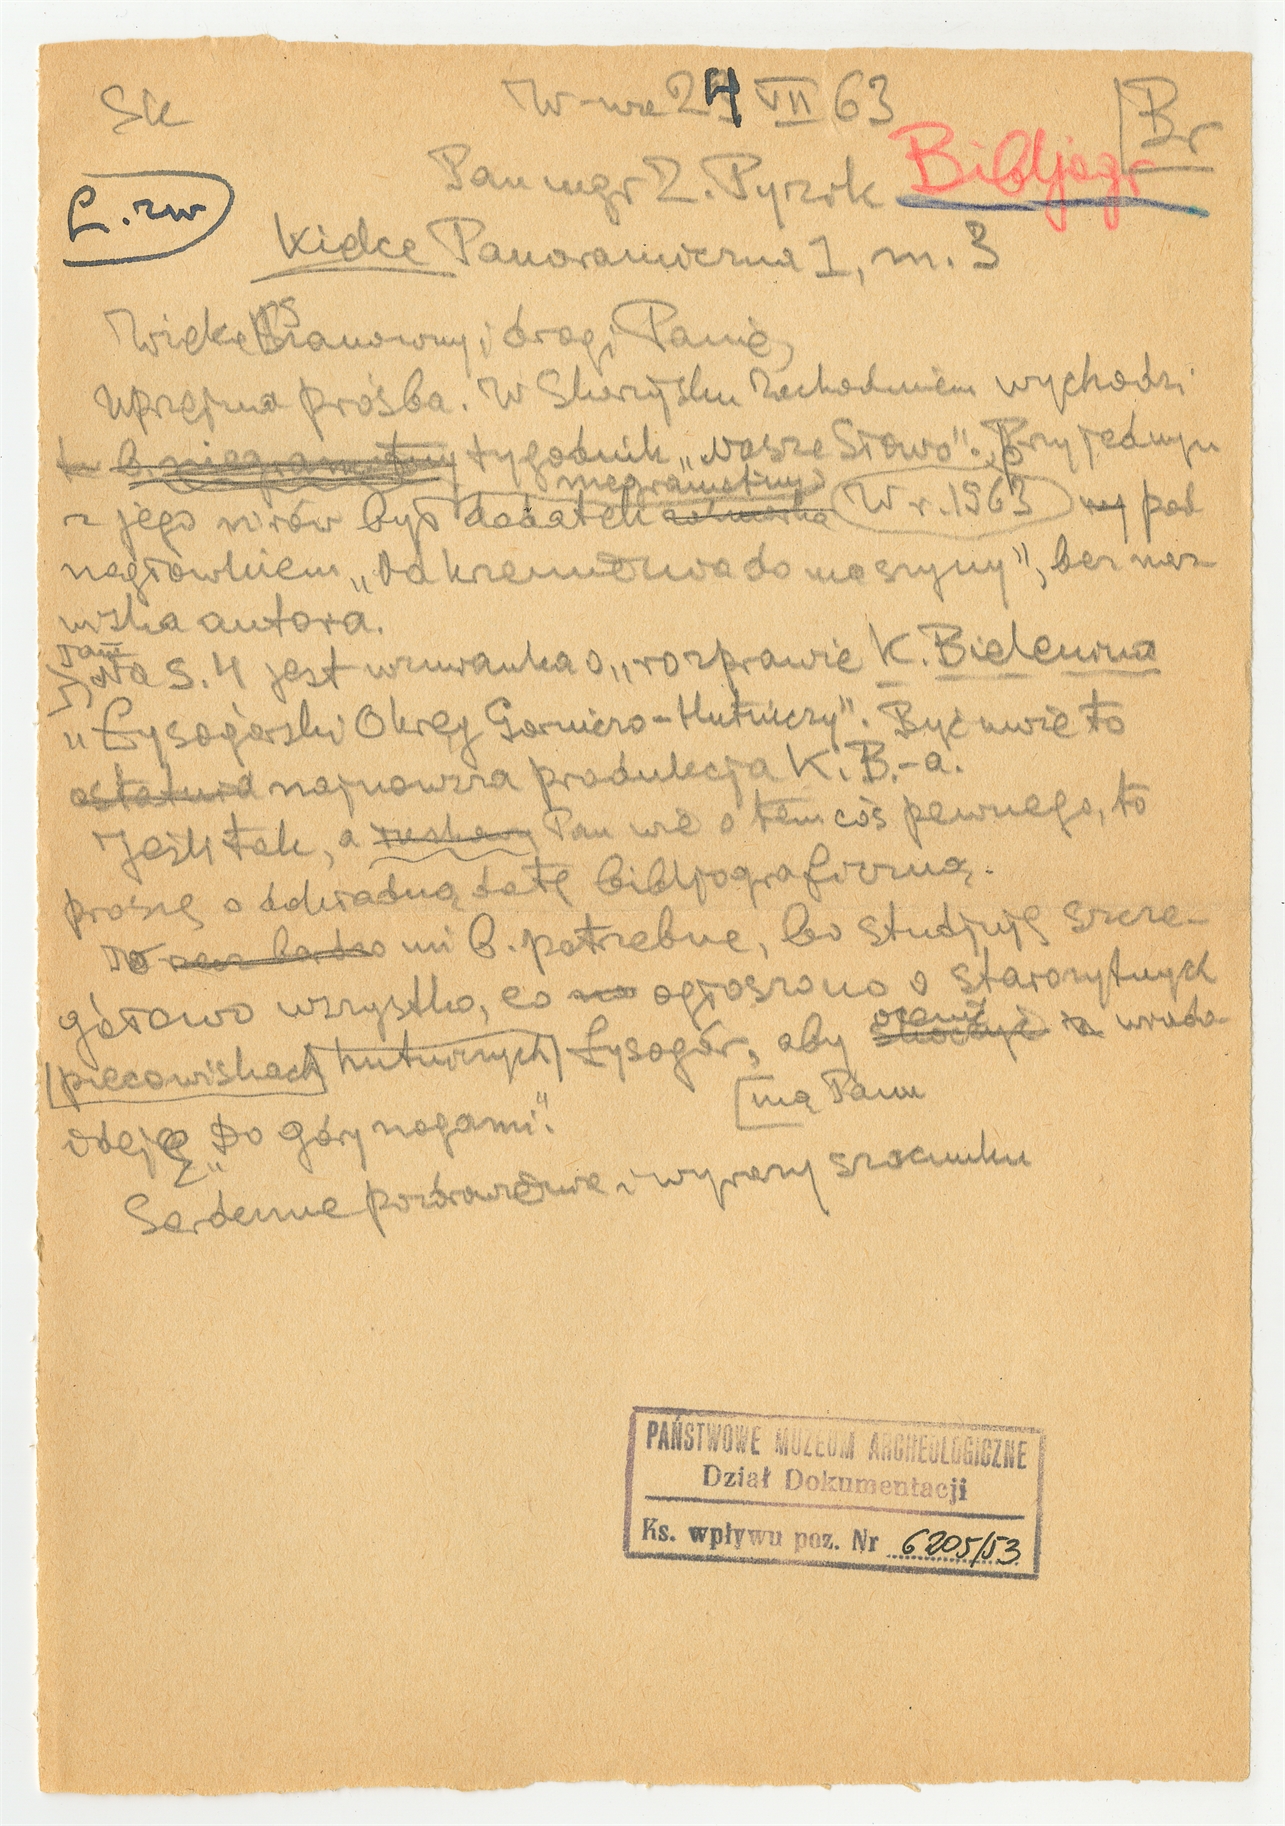 Sk W-wa 24 VII 63 Br
Pan mgr Z. Pyzik Bibljogr
Ł. zw
Kielce Panoramiczna 1, m. 3
Wielce Szanowny i drogi Panie,
Uprzejma prośba. W Skarżysku Zachodniem wychodzi
b. niegramotny tygodnik „Nasze Słowo". Przy jednym
niegramotny
z jego nrów był dodatek W r. 1963 pod
nagłówkiem „Od krzemienia do maszyny", bez naz-
wiska autora.
Tam
Na s. 4 jest wzmianka o „rozprawie K. Bielenina
„Łysogórski Okręg Górniczo-Hutniczy". Być może to
ostatnia najnowsza produkcja K. B.-a.
Jeśli tak, a Pan wie o tem coś pewnego, to
proszę o dokładną datę bibljograficzną.
To bardzo mi b. potrzebne, bo studjuję szcze-
gółowo wszystko, co ogłoszono o starożytnych
piecowiskach hutniczych Łysogór, aby ocenić wiado
mą Panu
ideję „Do góry nogami".
Serdeczne pozdrowienie i wyrazy szacunku
PAŃSTWOWE MUZEUM ARCHEOLOGICZNE
Dział Dokumentacji
Ks. wpływu poz. Nr 6205/53